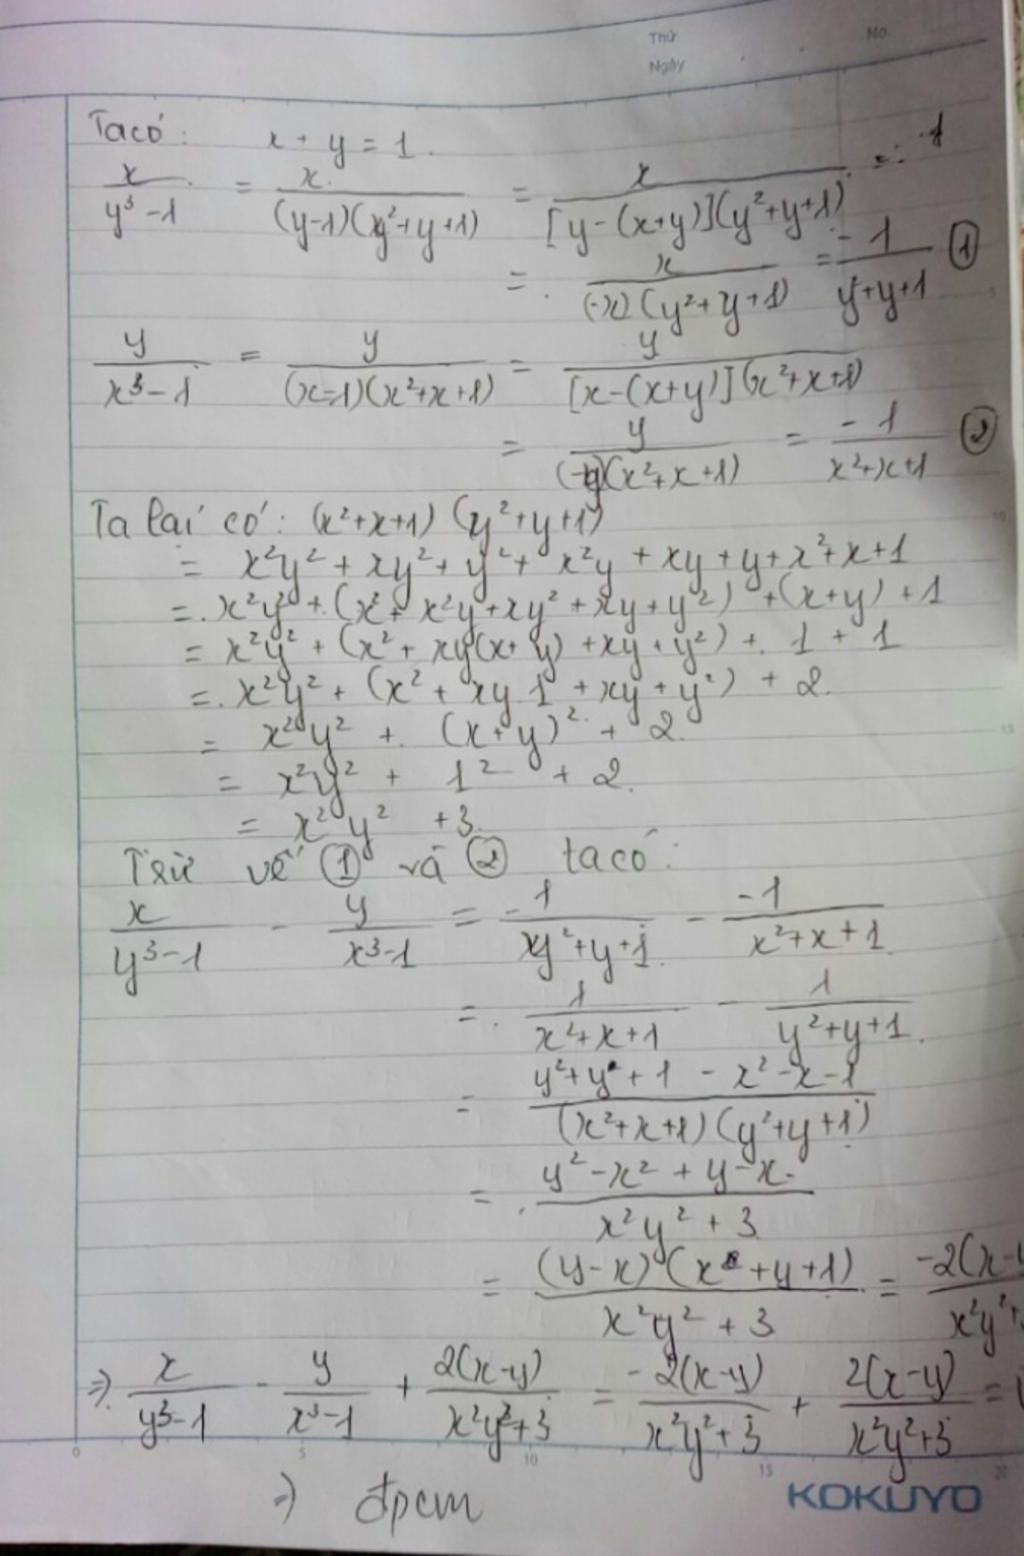 Thứ
No.
Ngày
Ta có: x + y = 1.
x/(y³ - 1) = x/((y-1)(y²+y+1)) = x/([y-(x+y)](y²+y+1))
= x/((-x)(y²+y+1)) = -1/(y²+y+1) ①
y/(x³ - 1) = y/((x-1)(x²+x+1)) = y/([x-(x+y)](x²+x+1))
= y/((-y)(x²+x+1)) = -1/(x²+x+1) ②
Ta lại có: (x²+x+1) (y²+y+1)
= x²y² + xy² + y² + x²y + xy + y + x² + x + 1
= x²y² + (x² + x²y + xy² + xy + y²) + (x + y) + 1
= x²y² + (x² + xy(x+y) + xy + y²) + 1 + 1
= x²y² + (x² + xy.1 + xy + y²) + 2.
= x²y² + (x+y)² + 2.
= x²y² + 1² + 2.
= x²y² + 3.
Trừ vế ① và ② ta có:
x/(y³-1) - y/(x³-1) = -1/(y²+y+1) - -1/(x²+x+1)
= 1/(x²+x+1) - 1/(y²+y+1).
= (y²+y+1 - x²-x-1)/((x²+x+1)(y²+y+1))
= (y²-x²+y-x)/(x²y²+3)
= (y-x)(x+y+1)/(x²y²+3) = -2(x-y/x²y²+
⇒ x/(y³-1) - y/(x³-1) + 2(x-y)/(x²y²+3) = -2(x-y)/(x²y²+3) + 2(x-y)/(x²y²+3) =
⇒ đpcm
0 5 10 15 20
KOKUYO